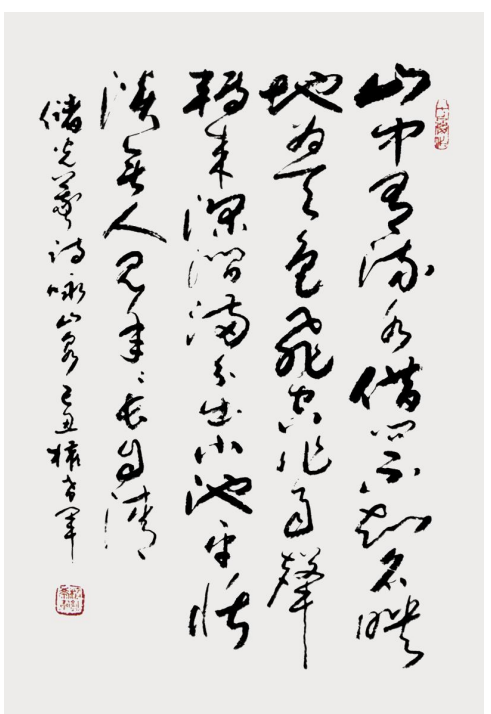 山中有流水借問不知名映
地为天色飛空作雨聲
轉来深澗滿分出小池平恬
澹无人見年々長自清
儲光羲詩咏山泉己丑